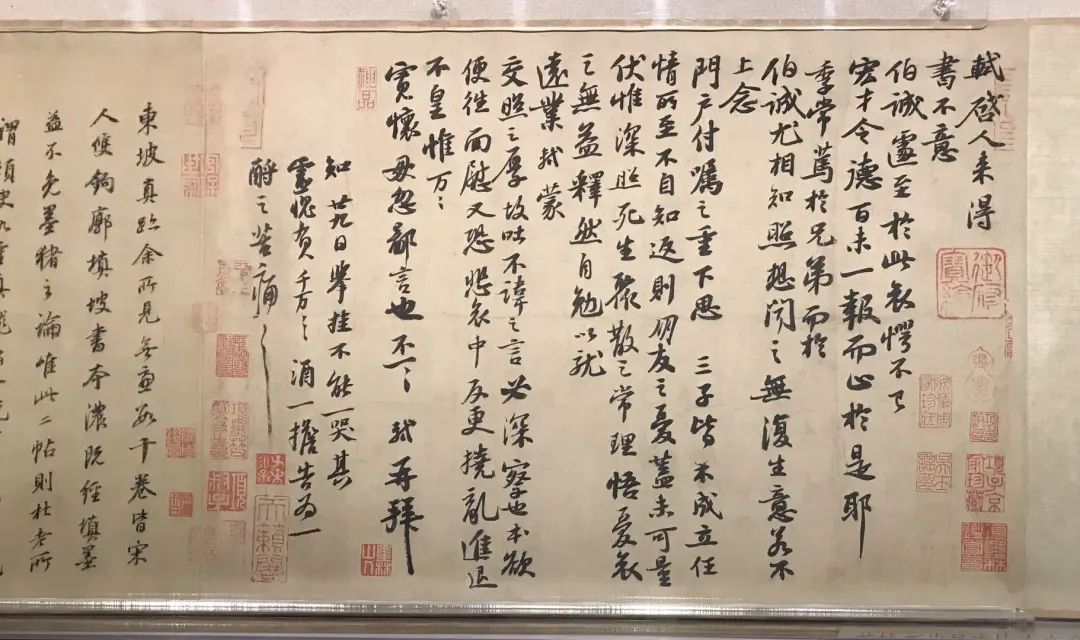 軾啓人来得
書不意
伯誠遽至於此哀愕不已
宏才令德百未一報而止於是耶
季常篤於兄弟而於
伯誠尤相知照想聞之無復生意若不
上念
門户付囑之重下思三子皆不成立任
情所至不自知返則朋友之憂蓋未可量
伏惟深照死生聚散之常理悟憂哀
之無益釋然自勉以就
遠業軾蒙
交照之厚故吐不諱之言必深察也本欲
便往面慰又恐悲哀中反更撓亂進退
不皇惟万〻
寬懷毋忽鄙言也不一〻軾再拜
知廿九日舉挂不能一哭其
靈愧負千万〻酒一擔告為一
酹之苦痛〻
東坡真跡余所見無慮數十卷皆宋
人雙鉤廓填坡書本濃既經填墨
益不免墨豬之論唯此二帖則杜老所
謂須臾九重真龍出一洗
神品
御府寶繪
項子京家珍藏
墨林山人
天籟閣